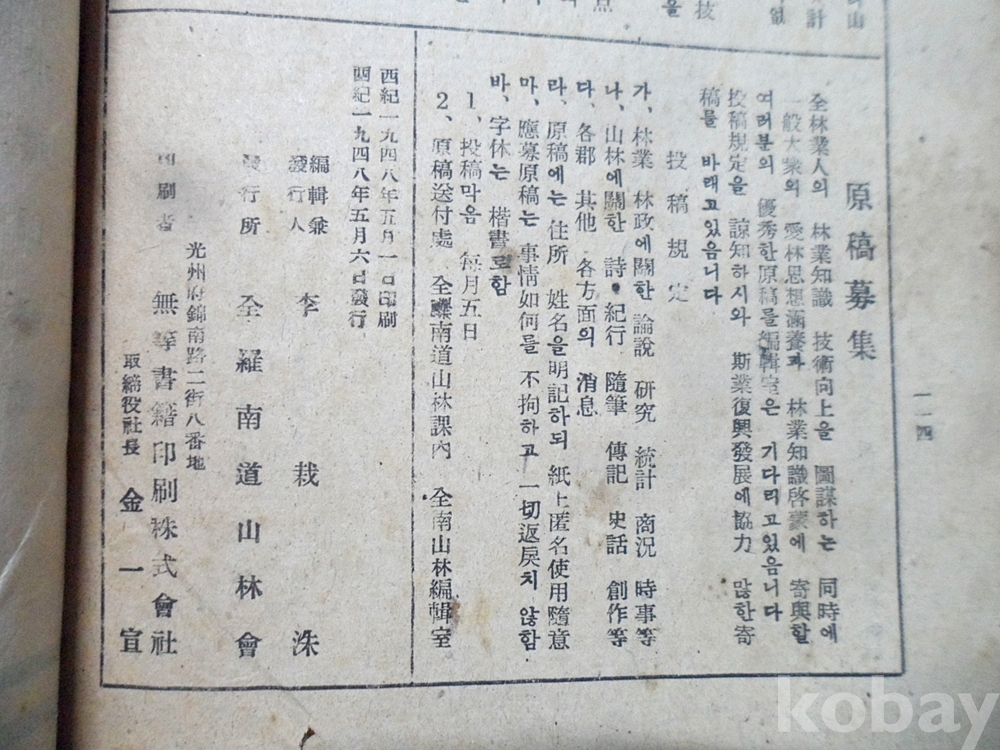 原稿募集
全林業人의 林業知識 技術向上을 圖謀하는 同時에
一般大衆의 愛林思想涵養과 林業知識啓蒙에 寄與할
여러분의 優秀한原稿를編輯室은 기다리고있음니다
投稿規定을 諒知하시와 斯業復興發展에協力 많한寄
稿를 바래고있음니다
投稿規定
가、林業 林政에關한 論說 硏究 統計 商況 時事等
나、山林에關한 詩・紀行 隨筆 傳記 史話 創作等
다、各郡 其他 各方面의 消息
라、原稿에는 住所 姓名을明記하되 紙上匿名使用隨意
마、應募原稿는 事情如何를 不拘하고 一切返戾치 않함
바、字休는 楷書로함
1、投稿막음 每月五日
2、原稿送付處 全羅南道山林課內 全南山林編輯室
西紀一九四八年五月一日印刷
西紀一九四八年五月六日發行
編輯兼
發行人 李栽洙
發行所 全羅南道山林會
光州府錦南路二街八番地
印刷者 無等書籍印刷株式會社
取締役社長 金一宣
一一四
kobay